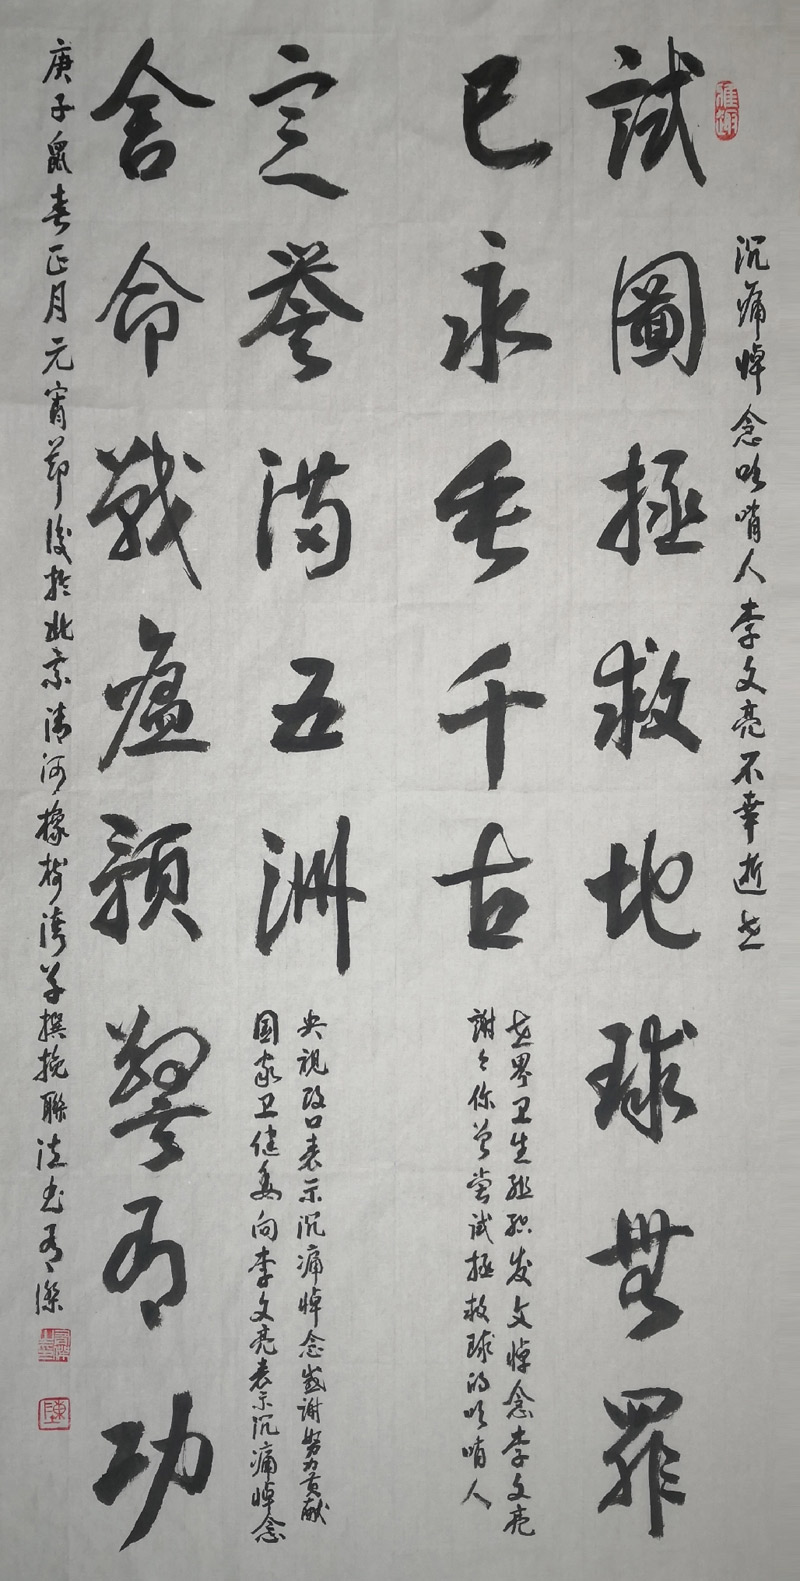 沉痛悼念吹哨人李文亮不幸逝世
試圖拯救地球無罪
已永垂千古
世界卫生组织发文悼念李文亮
謝々你曾嘗试拯救球的吹哨人
定誉满五洲
央视改口表示沉痛悼念感谢努力贡献
国家卫健委向李文亮表示沉痛悼念
舍命戰瘟預警有功
庚子鼠春正月元宵节後於北京清河橡树湾草撰挽聯法书有傑